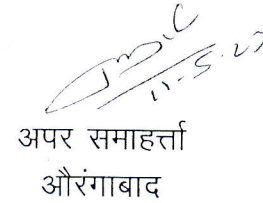 11-5-23
अपर समाहर्त्ता
औरंगाबाद